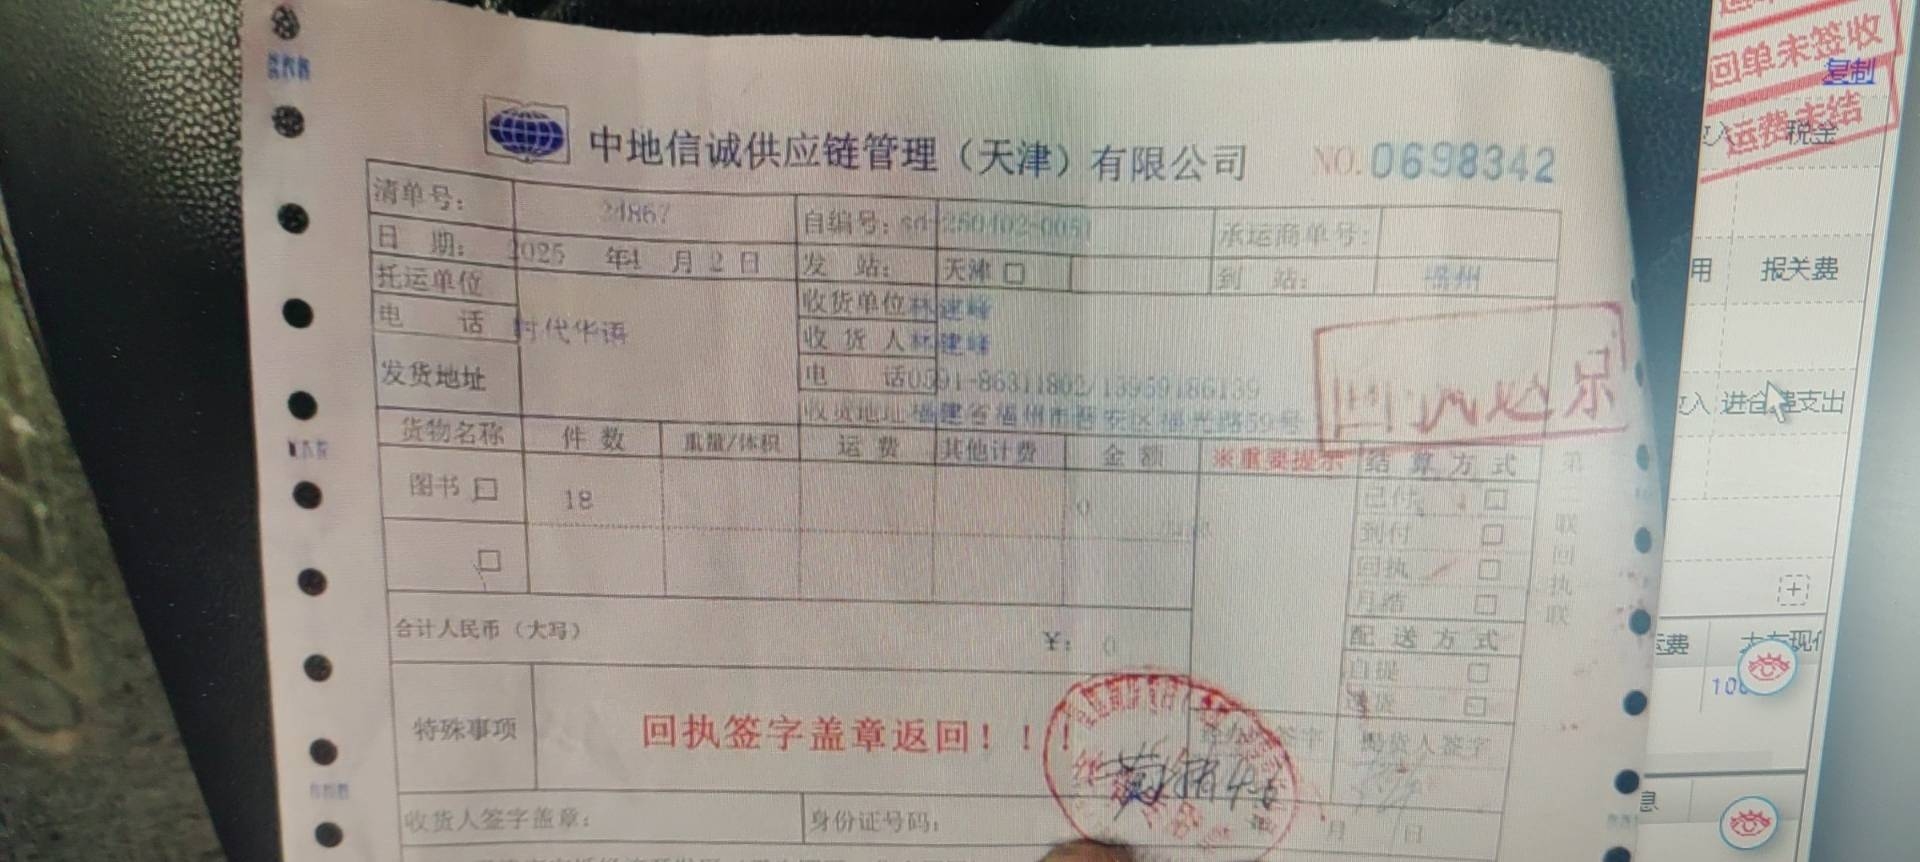 中地信诚供应链管理（天津）有限公司 NO.0698342
清单号： 24867 自编号：sd-250402-0051 承运商单号：
日 期： 2025 年4 月 2 日 发 站： 天津 □ 到 站： 福州
托运单位 收货单位 林建峰
电 话 时代华语 收 货 人 林建峰
发货地址 电 话 0591-86311802/13959186139
收货地址 福建省福州市晋安区福光路59号
货物名称 件 数 重量/体积 运 费 其他计费 金 额 ※重要提示 结 算 方 式
图书 □ 18 0 已付 □
到付 □
□ 回执 □
月结 □
合计人民币（大写） ￥： 0 配 送 方 式
自提 □
送货 □
特殊事项 回执签字盖章返回！！！ 签字 提货人签字
收货人签字盖章： 身份证号码： 月 日
第二联 回执联
回单未签收
复制
运费未结
税金
用 报关费
进仓 支出
运费
息